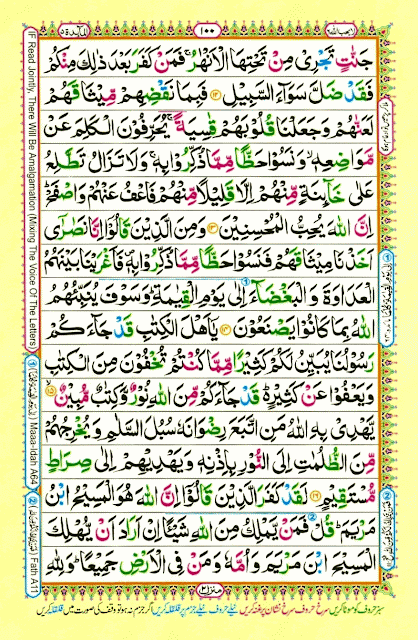 لا يحب الله ٦
١٠٠
المآئدة ٥
جَنّٰتٍ تَجۡرِىۡ مِنۡ تَحۡتِهَا الۡاَنۡهٰرُ‌ۚ فَمَنۡ كَفَرَ بَعۡدَ ذٰ لِكَ مِنۡكُمۡ
فَقَدۡ ضَلَّ سَوَآءَ السَّبِيۡلِ‏ ﴿۱۲﴾ فَبِمَا نَقۡضِهِمۡ مِّيۡثَاقَهُمۡ
لَعَنّٰهُمۡ وَجَعَلۡنَا قُلُوۡبَهُمۡ قٰسِيَةً‌ ۚ يُحَرِّفُوۡنَ الۡـكَلِمَ عَنۡ
مَّوَاضِعِهٖ‌ۙ وَنَسُوۡا حَظًّا مِّمَّا ذُكِّرُوۡا بِهٖۚ وَلَا تَزَالُ تَطَّلِعُ
عَلٰى خَآئِنَةٍ مِّنۡهُمۡ اِلَّا قَلِيۡلًا مِّنۡهُمۡ‌ فَاعۡفُ عَنۡهُمۡ وَاصۡفَحۡ‌ ؕ
اِنَّ اللّٰهَ يُحِبُّ الۡمُحۡسِنِيۡنَ‏ ﴿۱۳﴾ وَمِنَ الَّذِيۡنَ قَالُوۡۤا اِنَّا نَصٰرٰٓى
اَخَذۡنَا مِيۡثَاقَهُمۡ فَنَسُوۡا حَظًّا مِّمَّا ذُكِّرُوۡا بِهٖ فَاَغۡرَيۡنَا بَيۡنَهُمُ
الۡعَدَاوَةَ وَالۡبَغۡضَآءَ اِلٰى يَوۡمِ الۡقِيٰمَةِ‌ ؕ وَسَوۡفَ يُنَبِّئُهُمُ
اللّٰهُ بِمَا كَانُوۡا يَصۡنَعُوۡنَ‏ ﴿۱۴﴾ يٰۤـاَهۡلَ الۡكِتٰبِ قَدۡ جَآءَكُمۡ
رَسُوۡلُـنَا يُبَيِّنُ لَـكُمۡ كَثِيۡرًا مِّمَّا كُنۡتُمۡ تُخۡفُوۡنَ مِنَ الۡكِتٰبِ
وَيَعۡفُوۡا عَنۡ كَثِيۡرٍ‌ؕ قَدۡ جَآءَكُمۡ مِّنَ اللّٰهِ نُوۡرٌ وَّكِتٰبٌ مُّبِيۡنٌ ۙ‏ ﴿۱۵﴾
يَّهۡدِىۡ بِهِ اللّٰهُ مَنِ اتَّبَعَ رِضۡوَانَهٗ سُبُلَ السَّلٰمِ وَيُخۡرِجُهُمۡ
مِّنَ الظُّلُمٰتِ اِلَى النُّوۡرِ بِاِذۡنِهٖ وَيَهۡدِيۡهِمۡ اِلٰى صِرَاطٍ
مُّسۡتَقِيۡمٍ‏ ﴿۱۶﴾ لَقَدۡ كَفَرَ الَّذِيۡنَ قَالُوۡۤا اِنَّ اللّٰهَ هُوَ الۡمَسِيۡحُ ابۡنُ
مَرۡيَمَ‌ؕ قُلۡ فَمَنۡ يَّمۡلِكُ مِنَ اللّٰهِ شَيۡـئًـا اِنۡ اَرَادَ اَنۡ يُّهۡلِكَ
الۡمَسِيۡحَ ابۡنَ مَرۡيَمَ وَاُمَّهٗ وَمَنۡ فِى الۡاَرۡضِ جَمِيۡعًا‌ ؕ وَلِلّٰهِ
منزل ٢
سبز حروف کو موٹا کریں سرخ حروف سرخ نشان پر غنہ کریں نیلے حروف نیلے جزم پر قلقلہ کریں اگر جزم نہ ہو تو وقف کی صورت میں قلقلہ کریں
IF Read Jointly, There Will Be Amalgamation (Mixing The Voice Of The Letters)
① Maaa-Idah A64
② Fath A11